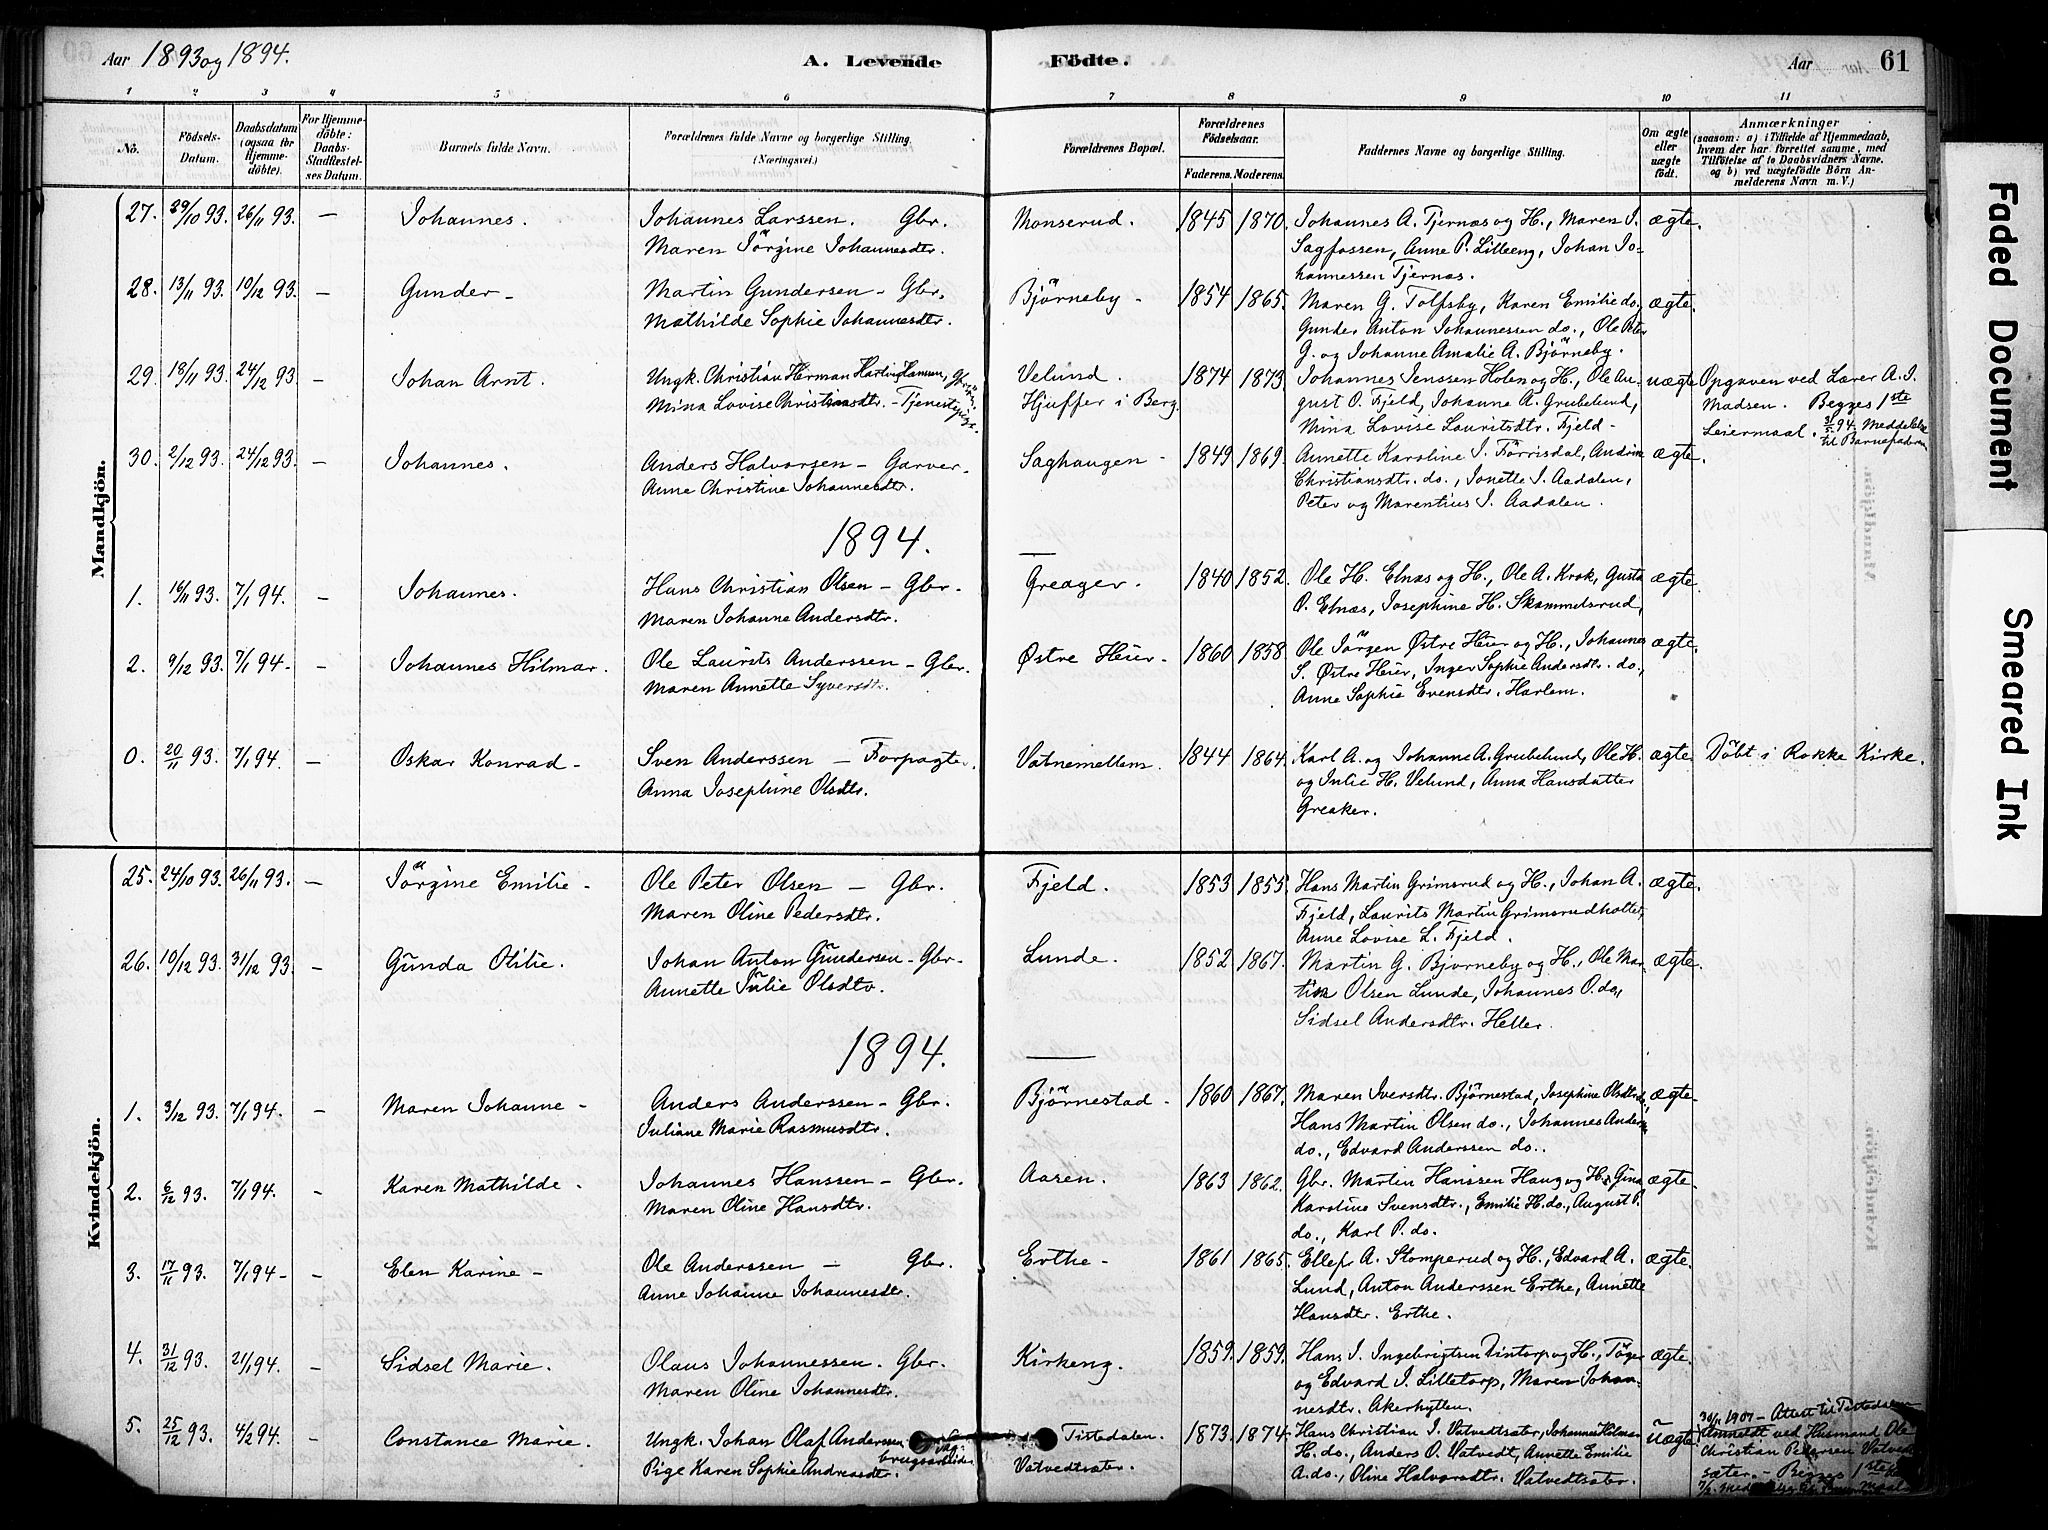 Aar 1893 og 1894.
A. Levende Födte.
Aar 61
1 2 3 4 5 6 7 8 9 10 11
No.
Födsels-Datum.
Daabsdatum (ogsaa for Hjemme-döbte).
For Hjemme-döbte: Daabs-Stadfæstel-ses Datum.
Barnets fulde Navn.
Forældrenes fulde Navne og borgerlige Stilling. (Næringsvei.)
Forældrenes Bopæl.
Forældrenes Födselsaar.
Faderens. Moderens.
Faddernes Navne og borgerlige Stilling.
Om ægte eller uægte födt.
Anmærkninger
(saasom: a) i Tilfælde af Hjemmedaab, hvem der har forrettet samme, med Tilföielse af to Daabsvidners Navne. og b) ved uægtefödte Börn An-melderens Navn m. V.)
Mandkjön.
27. 29/10 93. 26/11 93. — Johannes. Johannes Larssen. Gbr. Monserud. 1845 1870. Johannes A. Tjernæs og H., Maren I. ægte.
Maren Jörgine Johannesdtr. Sagfossen, Anne P. Lilleeng, Johan Jo-
hannessen Tjernæs.
28. 13/11 93. 10/12 93. — Gunder — Martin Gundersen — Gbr. Bjørneby — 1854 1865. Maren G. Tolfsby, Karen Emilie do. ægte.
Mathilde Sophie Johannesdtr. Gunder Anton Johannessen do., Ole Peter
G. og Johanne Amalie A. Bjørneby.
29. 18/11 93. 24/12 93. — Johan Arnt. Ungk. Christian Herman Hartvig Hansen, Velund. 1874 1873. Johannes Jenssen Holen og H., Ole Au- uægte Opgaven ved Lærer A. I.
Mina Lovise Christiansdtr. — Tjenestepige. Hjuffer i Berg. gust O. Fjeld, Johanne A. Grubelund, Madsen. Begges 1ste
Mina Lovise Lauritsdtr. Fjeld — Leiermaal. 94. Meddelelse til Barnefaderen
30. 2/12 93. 24/12 93. — Johannes. Anders Halvorsen — Garver. Saghaugen — 1849 1869. Annette Karoline I. Förrisdal, Andrin ægte.
Anne Christine Johannesdtr. Christiansdtr. do., Jonette I. Aadalen,
Peter og Marentius I. Aadalen.
1894.
1. 16/11 93. 7/1 94. — Johannes. Hans Christian Olsen — Gbr. Greager. 1840 1852. Ole H. Elnæs og H., Ole A. Krok, Gusta ægte.
Maren Johanne Andersdtr. O. Elnæs, Josephine H. Skammelsrud,
2. 9/12 93. 7/1 94 — — Johannes Hilmar. Ole Laurits Anderssen — Gbr. Østre Heier — 1860 1858. Ole Jörgen Østre Heier og H., Johannes ægte.
Maren Annette Syversdtr. S. Østre Heier, Inger Sophie Andersdtr. do.,
Anne Sophie Evensdtr. Harlem.
0. 20/11 93. 7/1 94. — Oskar Konrad — Sven Anderssen — Forpagter. Vatnemellem. 1844 1864. Karl A. og Johanne A. Grubelund, Ole H. ægte. Döbt i Rokke Kirke.
Anna Josephine Olsdtr. og Julie H. Velund, Anna Hansdatter
Greaker.
Kvindekjön.
25. 24/10 93. 26/11 93. — Jörgine Emilie — Ole Peter Olsen — Gbr. Fjeld. 1853 1855. Hans Martin Grimsrud og H., Johan A. ægte.
Maren Oline Pedersdtr. Fjeld, Laurits Martin Grimsrudholtet,
Anne Lovise L. Fjeld.
26. 10/12 93. 31/12 93. — Gunda Otilie. Johan Anton Gundersen — Gbr. Lunde. 1852 1867. Martin G. Bjørneby og H., Ole Mar- ægte.
Annette Julie Olsdtr. tin Olsen Lunde, Johannes O. do.,
Sidsel Andersdtr. Heller.
1894.
1. 3/12 93. 7/1 94. — Maren Johanne — Anders Anderssen — Gbr. Bjørnestad — 1860 1867. Maren Iversdtr. Bjørnestad, Josephine Olsdtr. do., ægte.
Juliane Marie Rasmusdtr. Hans Martin Olsen do., Johannes Anders.
do., Edvard Anderssen do.
2. 6/12 93. 7/1 94. — Karen Mathilde — Johannes Hanssen — Gbr. Aasen. 1863 1862. Gbr. Martin Hanssen Haug og H., Gina ægte.
Maren Oline Hansdtr. Karoline Svensdtr., Emilie H. do., August P.
do., Karl P. do.
3. 17/11 93. 7/1 94 — — Elen Karine — Ole Anderssen — Gbr. Erthe — 1861 1865. Ellef A. Stomperud og H., Edvard A. ægte.
Anne Johanne Johannesdtr. Lund, Anton Anderssen Erthe, Annette
Hansdtr. Erthe.
4. 31/12 93. 21/1 94. — Sidsel Marie. Olaus Johannessen. Gbr. Kirkeng. 1859. 1859. Hans I. Ingebrigtsen Vintorp og H., Töger ægte.
Maren Oline Johannesdtr. og Edvard I. Lilletorp, Maren Johan-
nesdtr. Akerhytten.
5. 25/12 93. 4/2 94. — Constance Marie. Ungk. Johan Olaf Andersen brugsarbeider Tistedalen. 1873. 1874. Hans Christian I. Vatvedtsæter, Johannes Holmen uægte 30/1 1907 — Attest til Tistedalen
Pige Karen Sophie Andreasdtr. Vatvedtsæter. H. do., Anders O. Vatvedt, Annette Emilie Anmeldt ved Husmand Ole
A. do., Oline Halvorsdtr. Vatvedtsæter. Christian Pedersen Vatvedt-
sæter. — Begges 1ste
Faded Document
Smeared Ink